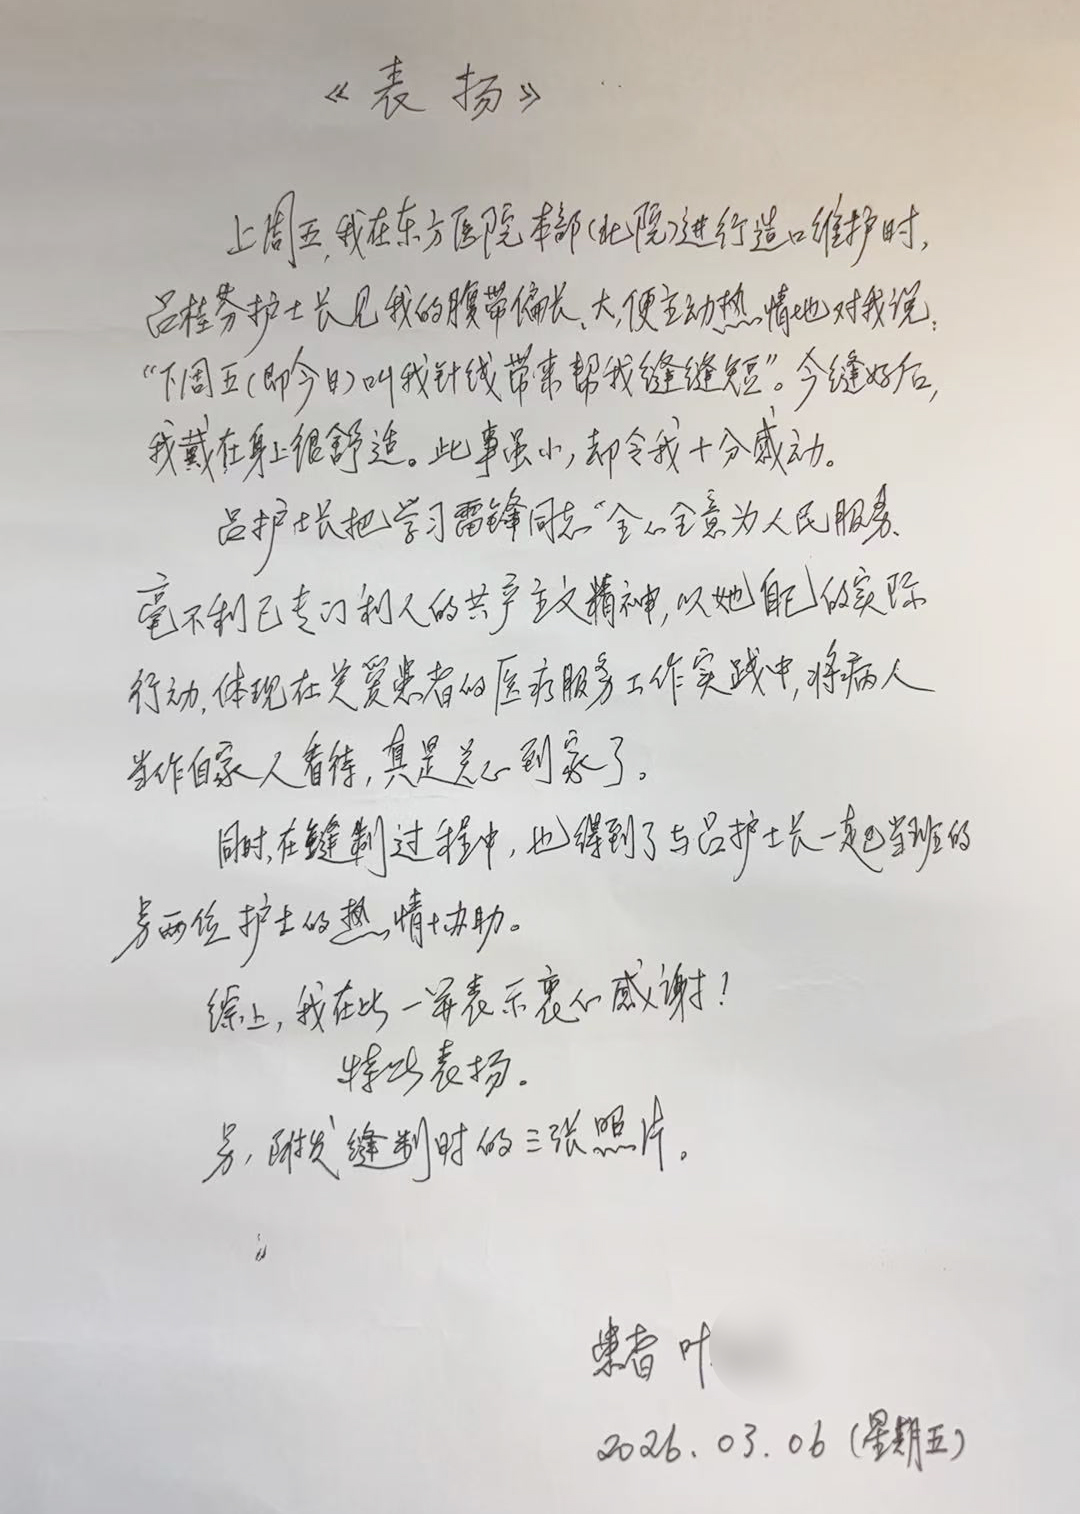 《表扬》
上周五,我在东方医院本部(北院)进行造口维护时,
吕桂芬护士长见我的腹带偏长、大,便主动热情地对我说:
“下周五(即今日)叫我针线带来帮我缝缝短”。今缝好后,
我戴在身上很舒适。此事虽小,却令我十分感动。
吕护士长把学习雷锋同志“全心全意为人民服务、
毫不利己专门利人的共产主义精神,以她自己的实际
行动,体现在关爱患者的医疗服务工作实践中,将病人
当作自家人看待,真是关心到家了。
同时,在缝制过程中,也得到了与吕护士长一起当班的
另两位护士的热情协助。
综上,我在此一并表示衷心感谢!
特此表扬。
另,附发缝制时的三张照片。
患者 叶
2026.03.06(星期五)